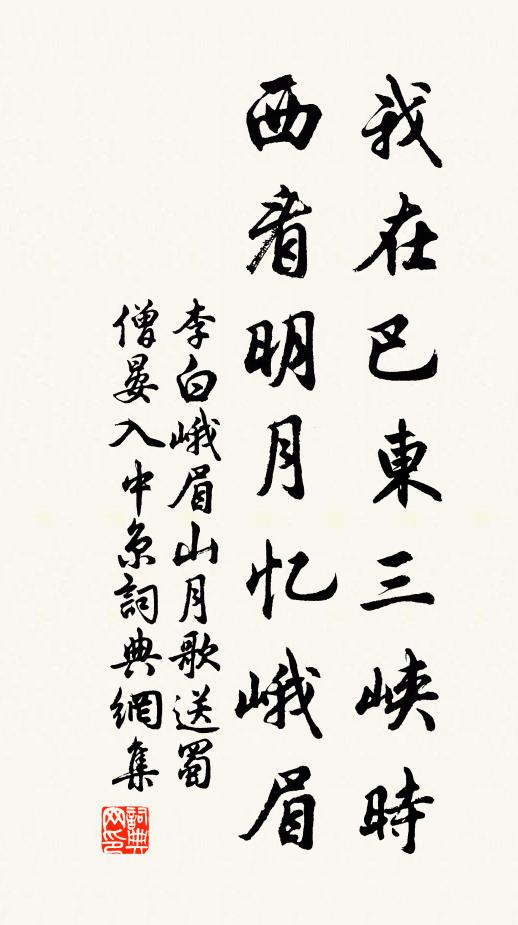 我在巴東三峽時
西看明月忆峨眉
李白峨眉山月歌送蜀
僧晏入中京詞典網集
詞典網印